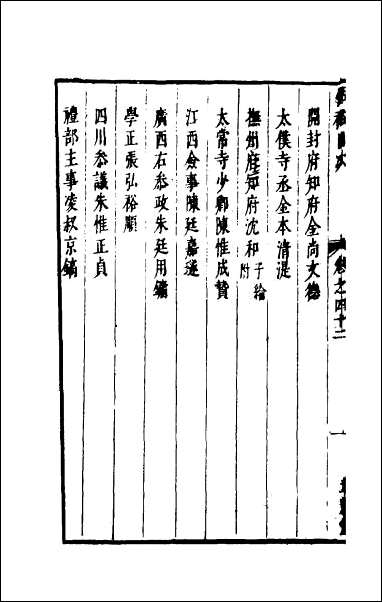 卷之四十二
一
開封府知府全尚文德
太僕寺丞全本清湜
撫州府知府沈和子綸附
太常寺少卿陳惟成贄
江西僉事陳廷嘉遂
廣西右叅政朱廷用鏞
學正張弘裕顯
四川叅議朱惟正貞
禮部主事凌叔京鎬